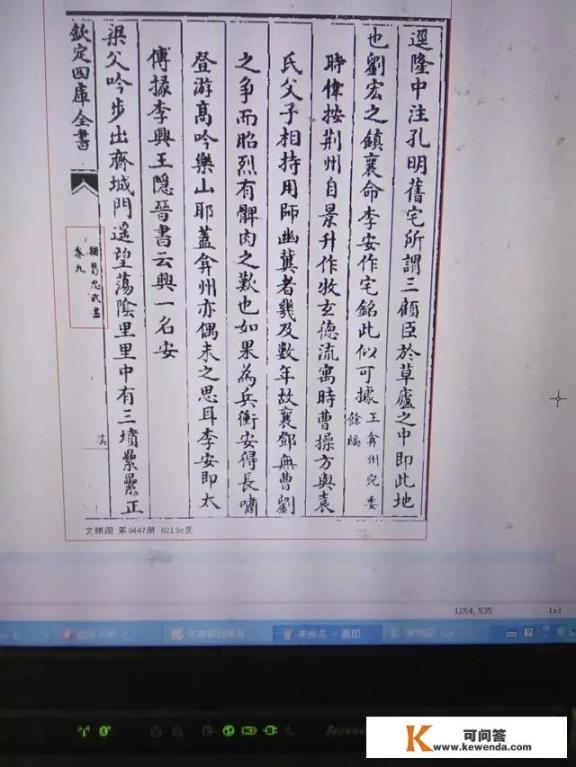 遥隆中注孔明舊宅所謂三顧臣於草廬之中即此地
也劉宏之鎮襄命李安作宅銘此似可據王弇州宛委
餘編
時偉按荆州自景升作牧玄德流寓時曹操方與袁
氏父子相持用師幽冀者幾及數年故襄鄧無曹劉
之爭而昭烈有髀肉之歎也如果為兵衝安得長嘯
登游髙吟樂山耶蓋弇州亦偶未之思耳李安即太
傅掾李興王隱晉書云興一名安
梁父吟步出齊城門遥望蕩隂里里中有三墳纍纍正
欽定四庫全書
諸葛忠武書
卷九
文淵阁 第0447册 0213c页
1254,535
未命名 - 画图
K 可问答
www.kewenda.com